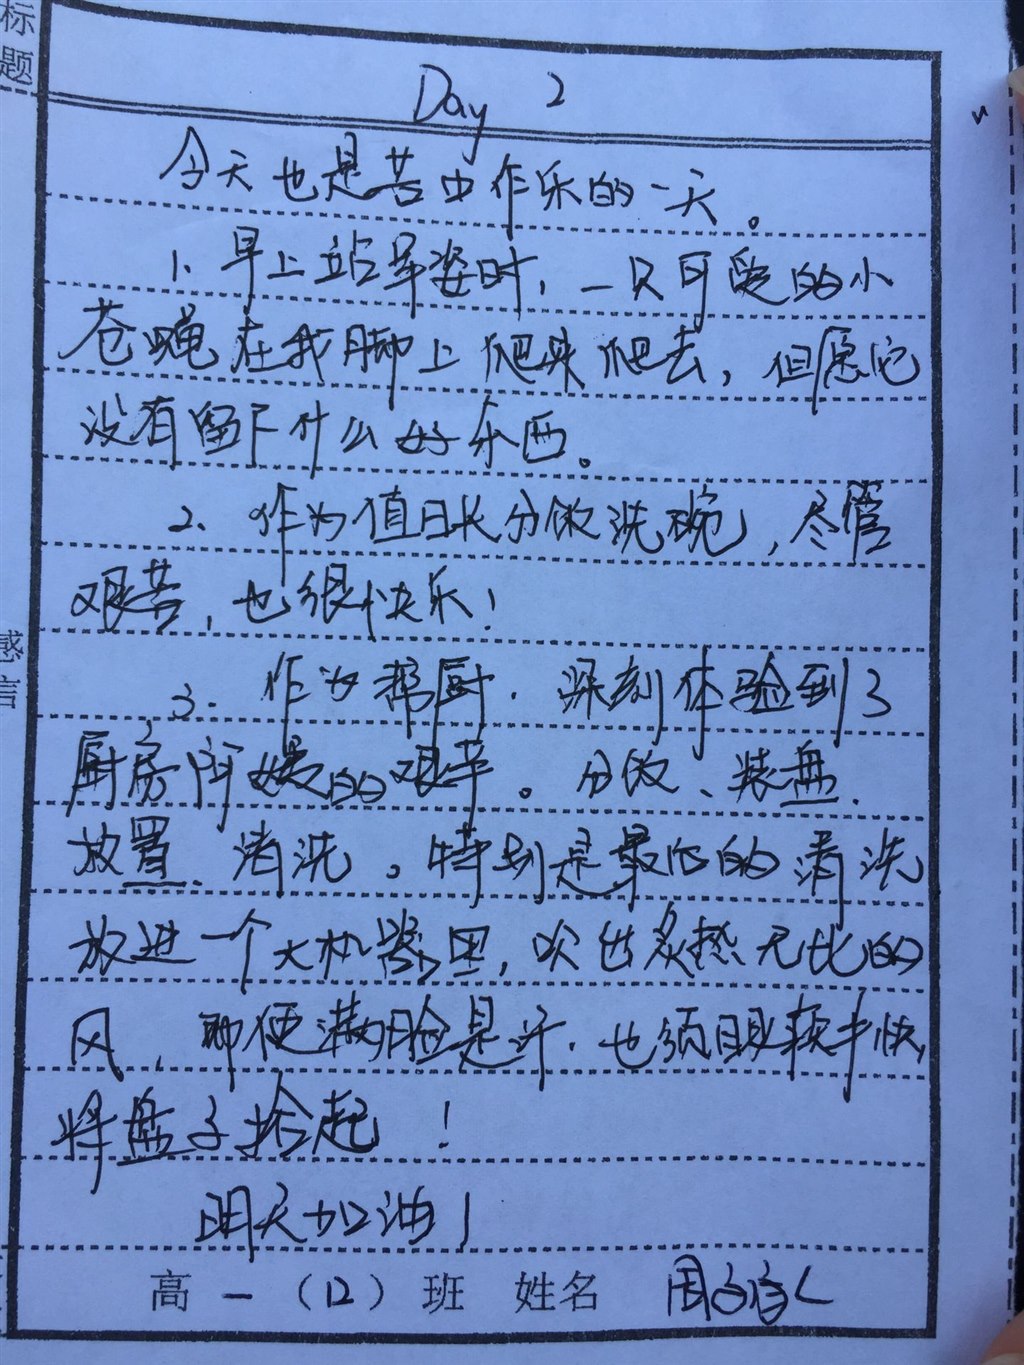 标题
Day 2
今天也是苦中作乐的一天。
1、早上站军姿时，一只可爱的小
苍蝇在我脚上爬来爬去，但愿它
没有留下什么好东西。
2、作为值日长分饭洗碗，尽管
艰苦，也很快乐！
感言
3.作为帮厨.深刻体验到了
厨房阿姨的艰辛。分饭、装盘、
放置、清洗。特别是最后的清洗
放进一个大机器里，吹出炙热无比的
风，即便满脸是汗.也须眼疾手快，
将盘子拾起！
明天加油！
高一（12）班 姓名 周